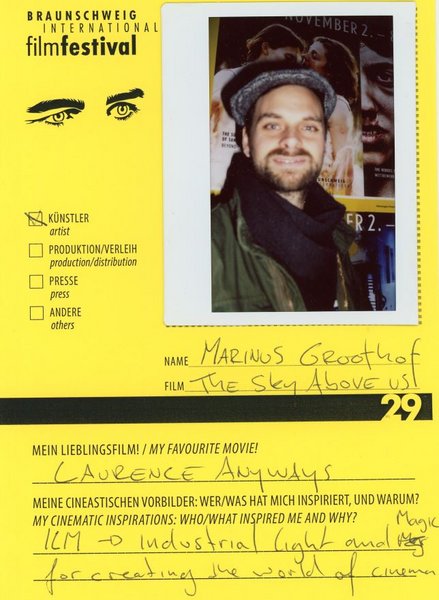 BRAUNSCHWEIG
INTERNATIONAL
filmfestival
NOVEMBER 2. -
BEYOND
BRAUNSCHWEIG
INTERNATIONAL
ER 2. –
KÜNSTLER
artist
PRODUKTION/VERLEIH
production/distribution
PRESSE
press
ANDERE
others
NAME MARINUS Groothof
FILM The Sky Above us
29
MEIN LIEBLINGSFILM! / MY FAVOURITE MOVIE!
LAURENCE ANYWAYS
MEINE CINEASTISCHEN VORBILDER: WER/WAS HAT MICH INSPIRIERT, UND WARUM?
MY CINEMATIC INSPIRATIONS: WHO/WHAT INSPIRED ME AND WHY?
ILM → Industrial light and Magic
for creating the world of cinema